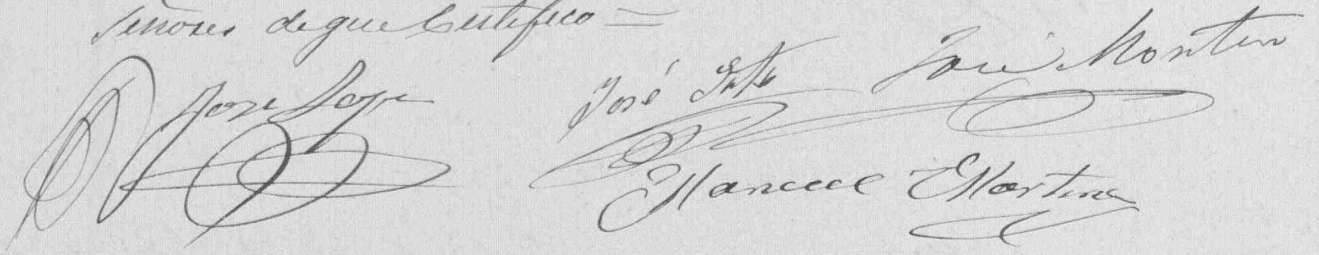 Señores de que Certifico =
José Lope
José
José Montero
Manuel Martinez